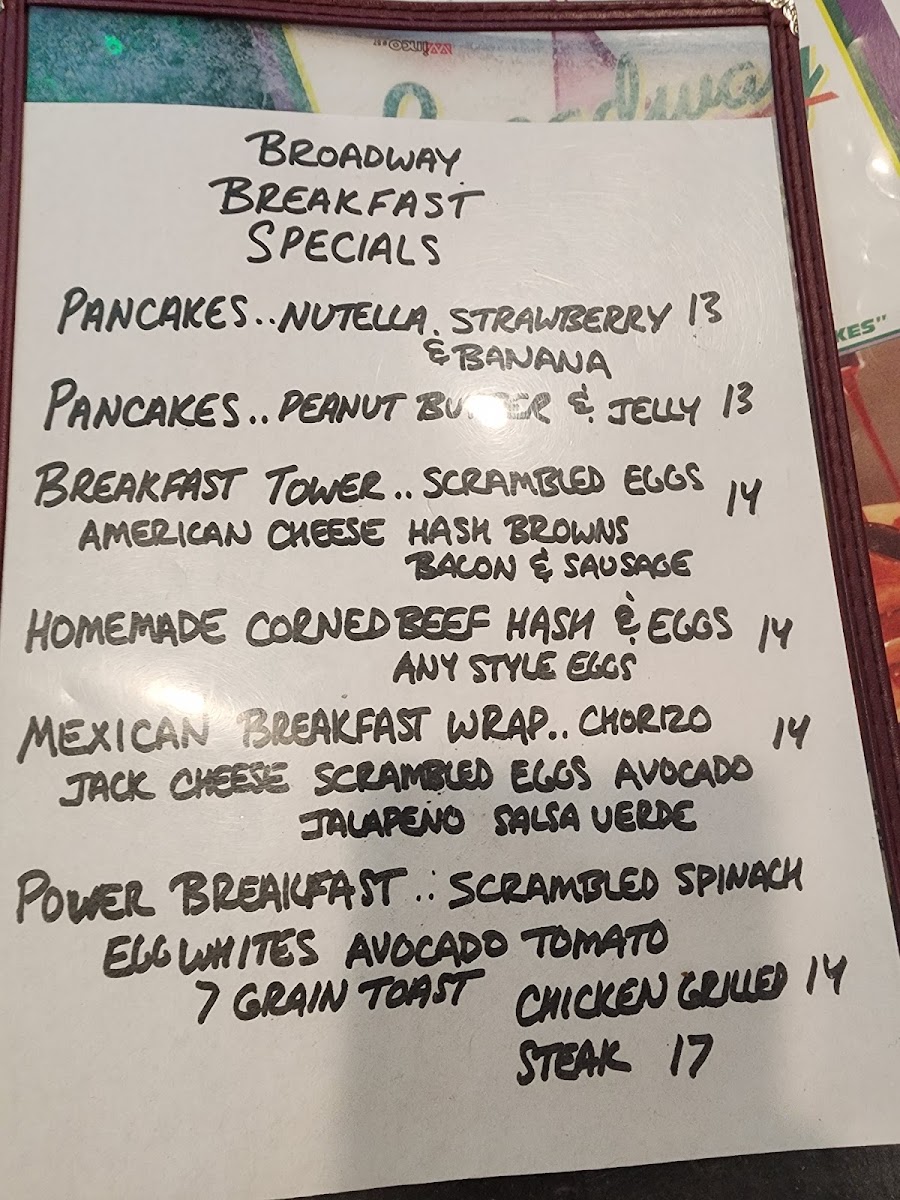 Winco
Broadway
KES"
BROADWAY
BREAKFAST
SPECIALS
PANCAKES..NUTELLA. STRAWBERRY 13
& BANANA
PANCAKES.. PEANUT BUTTER & JELLY 13
BREAKFAST TOWER.. SCRAMBLED EGGS 14
AMERICAN CHEESE HASH BROWNS
BACON & SAUSAGE
HOMEMADE CORNED BEEF HASH & EGGS 14
ANY STYLE EGGS
MEXICAN BREAKFAST WRAP.. CHORIZO 14
JACK CHEESE SCRAMBLED EGGS AVOCADO
JALAPEÑO SALSA VERDE
POWER BREAKFAST .: SCRAMBLED SPINACH
EGG WHITES AVOCADO TOMATO
7 GRAIN TOAST CHICKEN GRILLED 14
STEAK 17